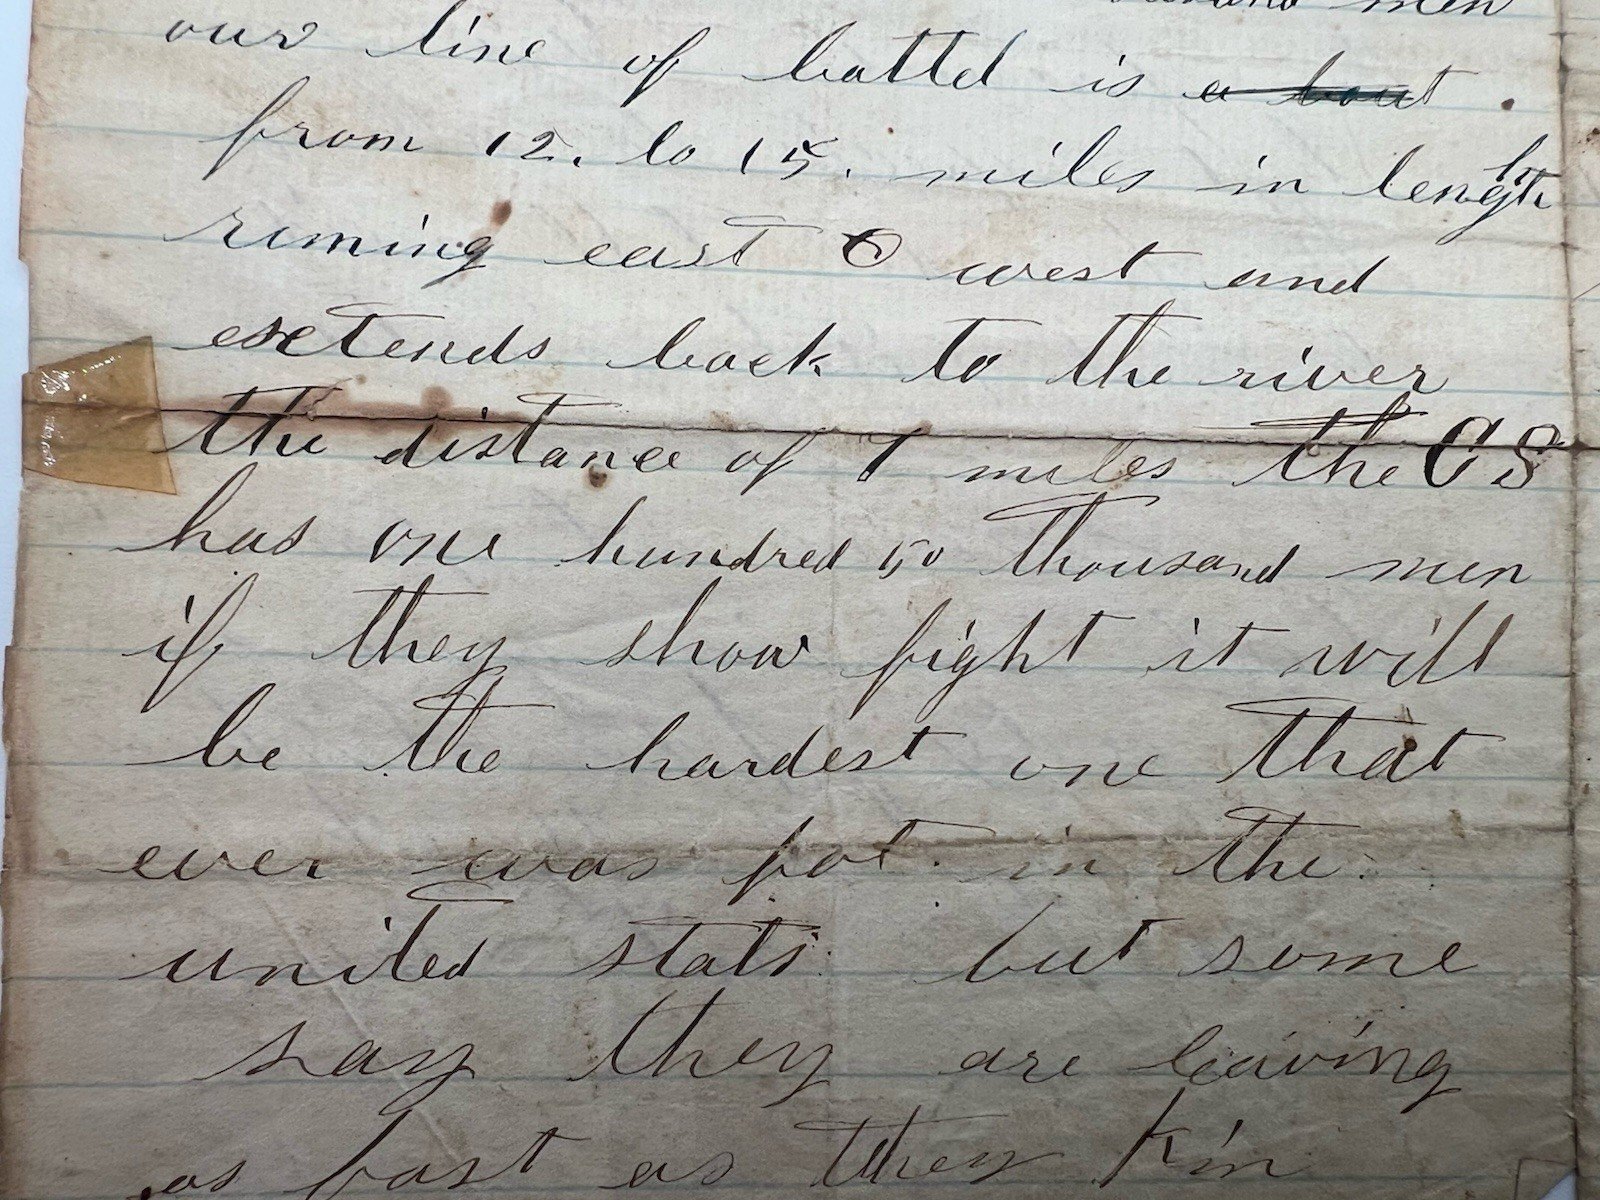 men
our line of battel is a bout
from 12. to 15. miles in length
runing east & west and
exctends back to the river
the distance of 7 miles the CS
has one hundred 50 thousand men
if they show fight it will
be the hardest one that
ever was fot in the
united stats but some
say they are leaving
as fast as they kin